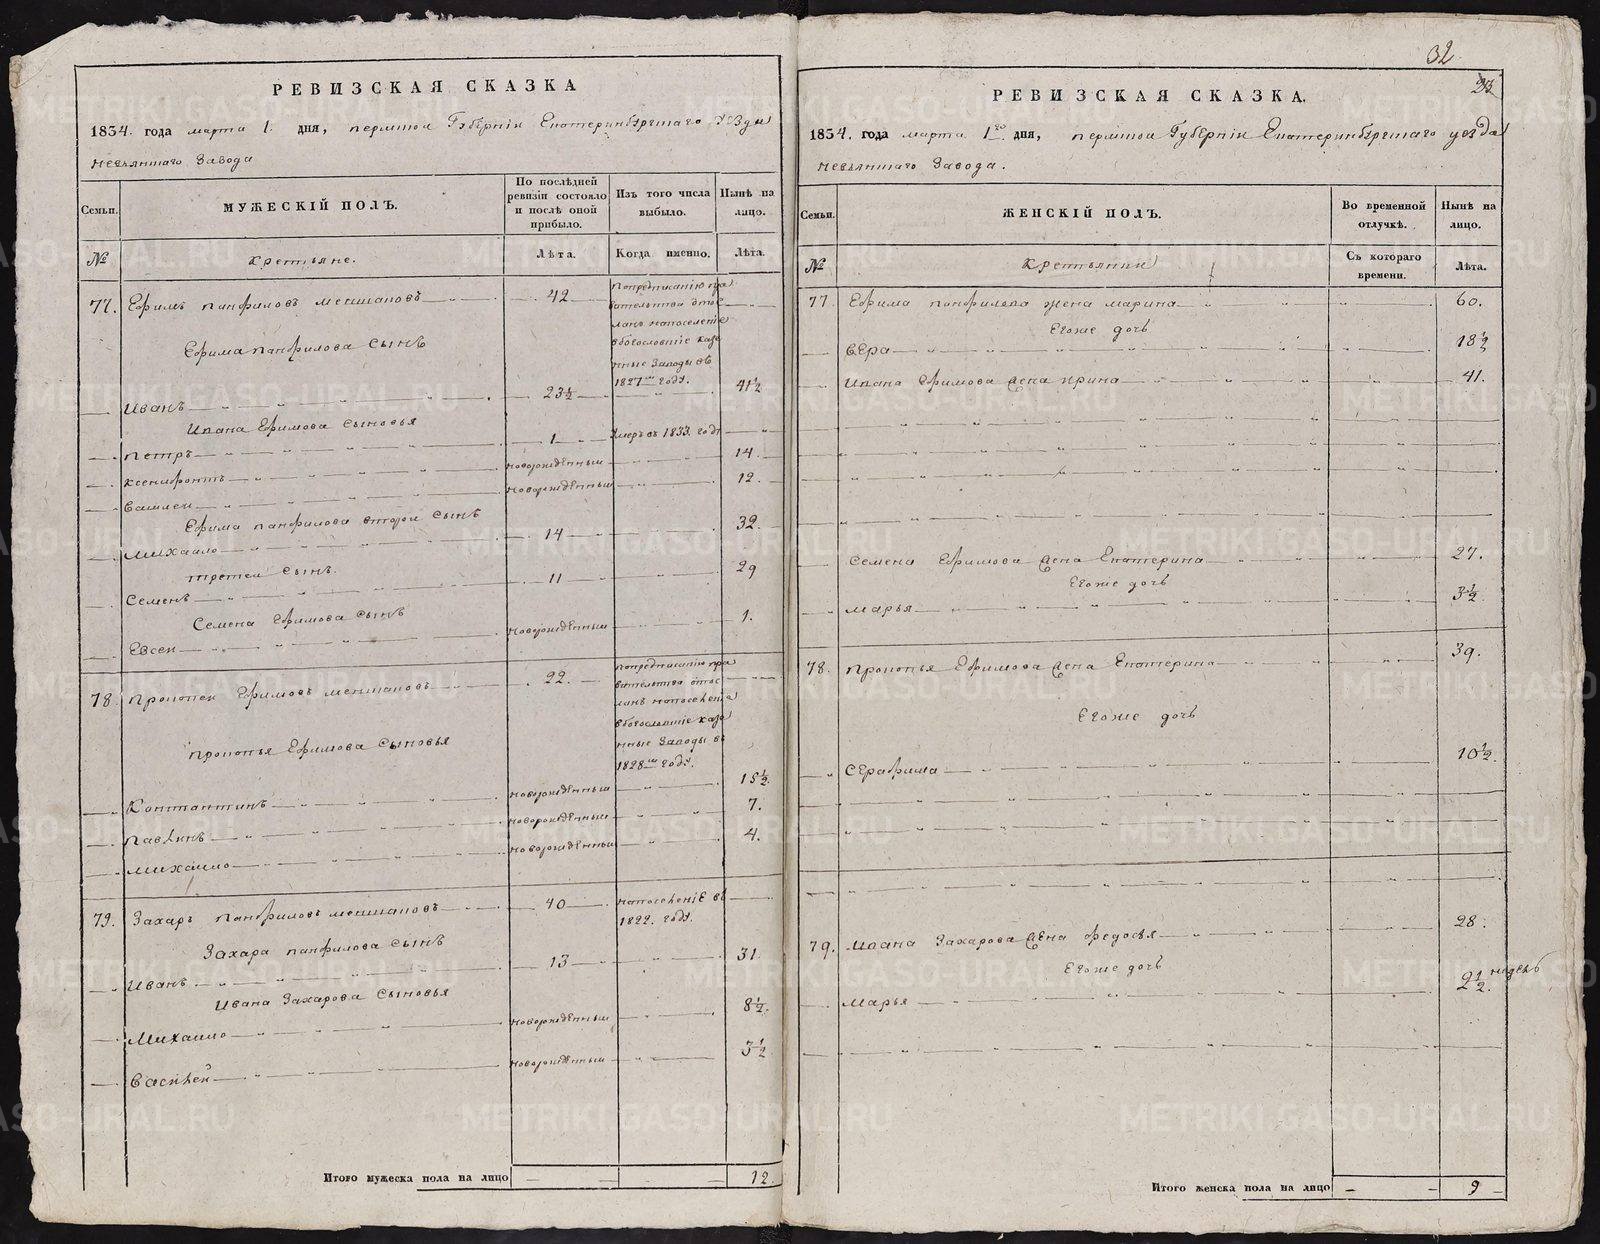 32
РЕВИЗСКАЯ СКАЗКА
1834. года марта 1. дня, пермской Губернiи Екатеринбургскаго Уезда
невьянскаго Завода
Семьи. МУЖЕСКIЙ ПОЛЪ. По послѣдней ревизiи состояло и послѣ оной прибыло. Изъ того числа выбыло. Нынѣ на лицо.
№ Крестьяне. Лѣта. Когда именно. Лѣта.
77. Ефимъ панфиловъ меншаковъ 42 Попредписанiю пра
вительства отос
ланъ напоселенiе
вбогословскiе казе
нные Заводы въ
1827мъ году.
Ефима панфилова Сынъ
Иванъ 23½ 41½
Ивана Ефимова Сыновья
петръ 1 Умеръ въ 1833. году
ксенофонтъ новорожденный 14
Василеи новорожденный 12.
Ефима панфилова второй Сынъ
михаило 14 32.
третей Сынъ.
Семенъ 11 29
Семена Ефимова Сынъ
Евсеи новорожденный 1.
78. прокопеи Ефимовъ меншаковъ 22. попредписанiю пра
вительства отос
ланъ напоселенiе
вбогословскiе казе
нные Заводы въ
1828мъ году.
прокопья Ефимова Сыновья
Константинъ новорожденный 15½
павлинъ новорожденный 7.
михаило новорожденный 4.
79. Захаръ панфиловъ меншаковъ 40 напоселенiе въ
1822. году.
Захара панфилова Сынъ
Иванъ 13 31
Ивана Захарова Сыновья
Михаило новорожденный 8½
Василей новорожденный 3½
Итого мужеска пола на лицо 12
23
РЕВИЗСКАЯ СКАЗКА.
1834. года марта 1го дня, пермской Губернiи Екатеринбургскаго уезда
невьянскаго Завода.
Семьи. ЖЕНСКIЙ ПОЛЪ. Во временной отлучкѣ. Нынѣ на лицо.
№ Крестьянки Съ котораго времени. Лѣта.
77 Ефима панфилова жена марина 60.
Егоже дочь
вера 18½
Ивана Ефимова жена ирина 41.
Семена Ефимова жена Екатерина 27.
Егоже дочь
марья 3½
78. прокопья Ефимова жена Екатерина 39.
Егоже дочь
Серафима 10½.
79. Ивана Захарова жена федосья 28.
Егоже дочь
марья 2½. недель
Итого женска пола на лицо 9
METRIKI.GASO-URAL.RU